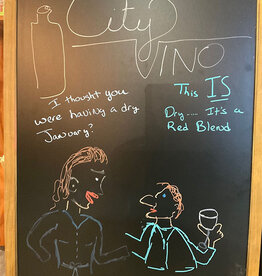 City
VINO
I thought you
were having a dry
January?
This IS
Dry.... It's a
Red Blend